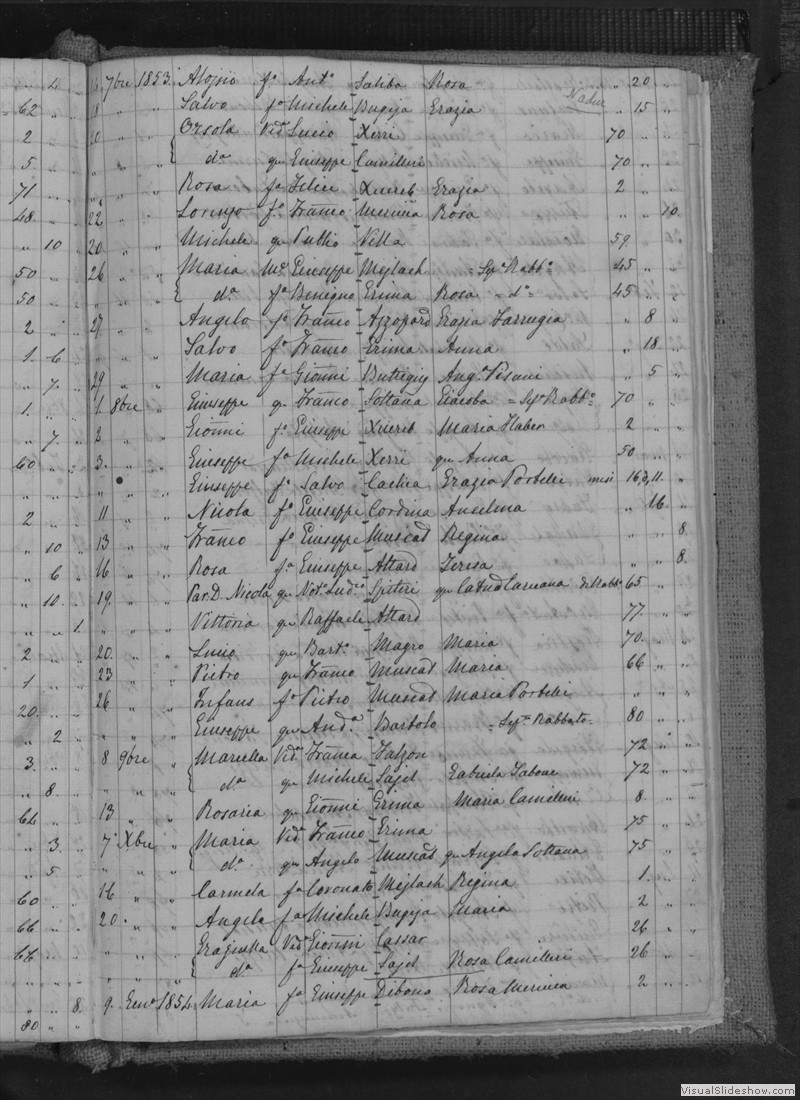 „ 4 „ 16 7bre 1853. Aloisio fo Anto Saliba Rosa „ 20 „
62 „ „ 18 „ „ Salvo fo Michele Bugeja Grazia Nadur „ 15 „
2 „ „ 20 „ „ Orsola Vida Lucio Xerri 70 „ „
5 „ „ „ „ „ da qm Giuseppe Camilleri 70 „ „
71 „ „ „ „ „ Rosa fa Felice Xuereb Grazia 2 „ „
48 „ „ 22 „ „ Lorenzo fo Franco Mercieca Rosa „ „ 10
„ 10 „ 20 „ „ Michele qm Vella 59 „ „
50 „ „ 26 „ „ Maria Me Giuseppe Mejlach = Sepa Rabbo 45 „ „
50 „ „ „ „ „ da fa Benigno Grima Rosa = do = 45 „ „
2 „ „ 27 „ „ Angelo fo Franco Azzopard Grazia Farrugia „ 8 „
1 6 „ „ „ „ Salvo fo Franco Grima Anna „ 18 „
„ 7 „ 29 „ „ Maria fa Gionni Buttigieg Anga Pisani „ 5 „
1 „ „ 1 8bre „ Giuseppe qm Franco Soltana Giacoba = Sepo Rabbo 70 „ „
„ 7 „ 2 „ „ Gionni fo Giuseppe Xuereb Maria Haber 2 „ „
60 „ „ 3. „ „ Giuseppe fo Michele Xerri qm Anna 50 „ „
„ „ „ „ „ „ Giuseppe fo Salvo Cachia Grazia Portelli mesi „
2 „ „ 11 „ „ Nicola fo Giuseppe Cordina Anselma „ 16 „
„ 10 „ 13 „ „ Franco fo Giuseppe Muscad Regina „ „ 8.
„ 6 „ 16 „ „ Rosa fa Giuseppe Attard Teresa „ „ 8.
„ 10 „ 19. „ „ Par. D. Nicola qm Noto Spiteri qm 65 „ „
„ „ 1 „ „ „ Vittoria qm Raffaele Attard 77. „ „
2 „ „ 20. „ „ Lucio qm Barto Magro Maria 70. „ „
1 „ „ 23 „ „ Pietro qm Franco Muscat Maria 66 „ „
20. „ „ 26 „ „ Infans fo Pietro Muscat Maria Portelli „ „ „
„ 2 „ „ „ „ Giuseppe qm Anda Bartolo = Sepa Rabbato = 80 „ „
3. „ „ 8 9bre „ Marcella Vida Franca Falzon 72 „ „
„ 8. „ „ „ „ da qm Michele Sajd Gabriela 72 „ „
66 „ „ 13 „ „ Rosaria qm Gionni Grima Maria Camilleri 8. „ „
„ 3 „ 7 Xbre „ Maria Vida Franco Grima 75 „ „
„ 5 „ „ „ „ da qm Angelo Muscat qm Angela Soltana 75 „ „
60 „ „ 16 „ „ Carmela fa Coronato Mejlach Regina 1. „ „
66 „ „ 20. „ „ Angela fa Michele Bugeja Maria 2 „ „
66. „ „ „ „ „ Graziella Vida Gionni Cassar 26 „ „
„ „ „ „ „ „ da fa Giuseppe Sajd Rosa Camilleri 26 „ „
„ „ 8. 9. Geno 1854 Maria fa Giuseppe Dibono Rosa Mercieca 2 „ „
80 „ „
VisualSlideshow.com